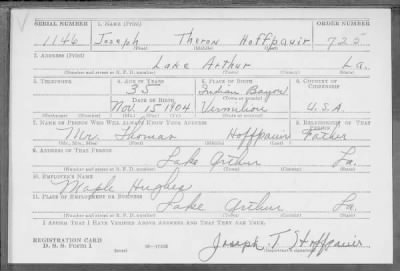 SERIAL NUMBER 1. NAME (Print) ORDER NUMBER
1146 Joseph Theron Hoffpauir 725
(First) (Middle) (Last)
2. ADDRESS (Print)
Lake Arthur La.
(Number and street or R. F. D. number) (Town) (County) (State)
3. TELEPHONE 4. AGE IN YEARS 5. PLACE OF BIRTH 6. COUNTRY OF CITIZENSHIP
35 Indian Bayou
DATE OF BIRTH (Town or county)
Nov. 15 1904 Vermilion U.S.A.
(Exchange) (Number) (Mo.) (Day) (Yr.) (State or country)
7. NAME OF PERSON WHO WILL ALWAYS KNOW YOUR ADDRESS 8. RELATIONSHIP OF THAT PERSON
Mr. Thomas Hoffpauir Father
(Mr., Mrs., Miss) (First) (Middle) (Last)
9. ADDRESS OF THAT PERSON
Lake Arthur La.
(Number and street or R. F. D. number) (Town) (County) (State)
10. EMPLOYER'S NAME
Maple Hughes
11. PLACE OF EMPLOYMENT OR BUSINESS
Lake Arthur La.
(Number and street or R. F. D. number) (Town) (County) (State)
I AFFIRM THAT I HAVE VERIFIED ABOVE ANSWERS AND THAT THEY ARE TRUE.
REGISTRATION CARD
D. S. S. Form 1 (over) Joseph T. Hoffpauir